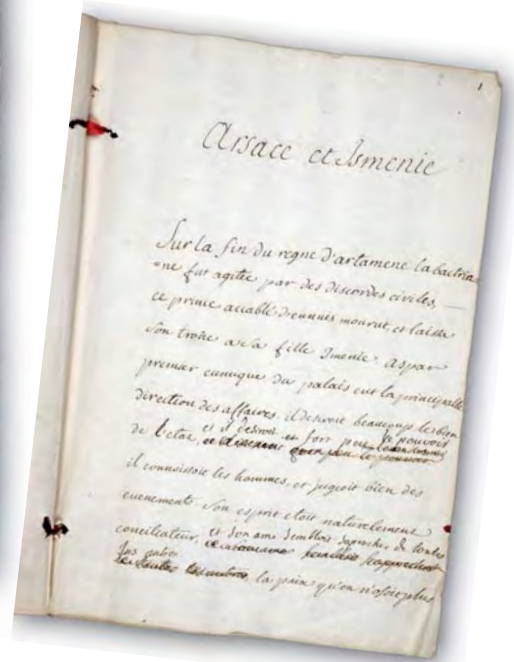 1
Arsace et Ismenie
Sur la fin du regne d'artamene la bactria
=ne fut agitée par des discordes civiles,
ce prince accablé d'ennuis mourut, et laissa
son trône a sa fille Ismenie. aspar
premier eunuque du palais eut la principale
direction des affaires. il desiroit beaucoup le bien
de l'etat, et il desiroit fort peu le pouvoir
il connoissoit les hommes, et jugeoit bien des
evenements. Son esprit etoit naturellement
conciliateur, et son ame sembloit s'aprocher de toutes
les autres la paix qu'on n'osoit plus